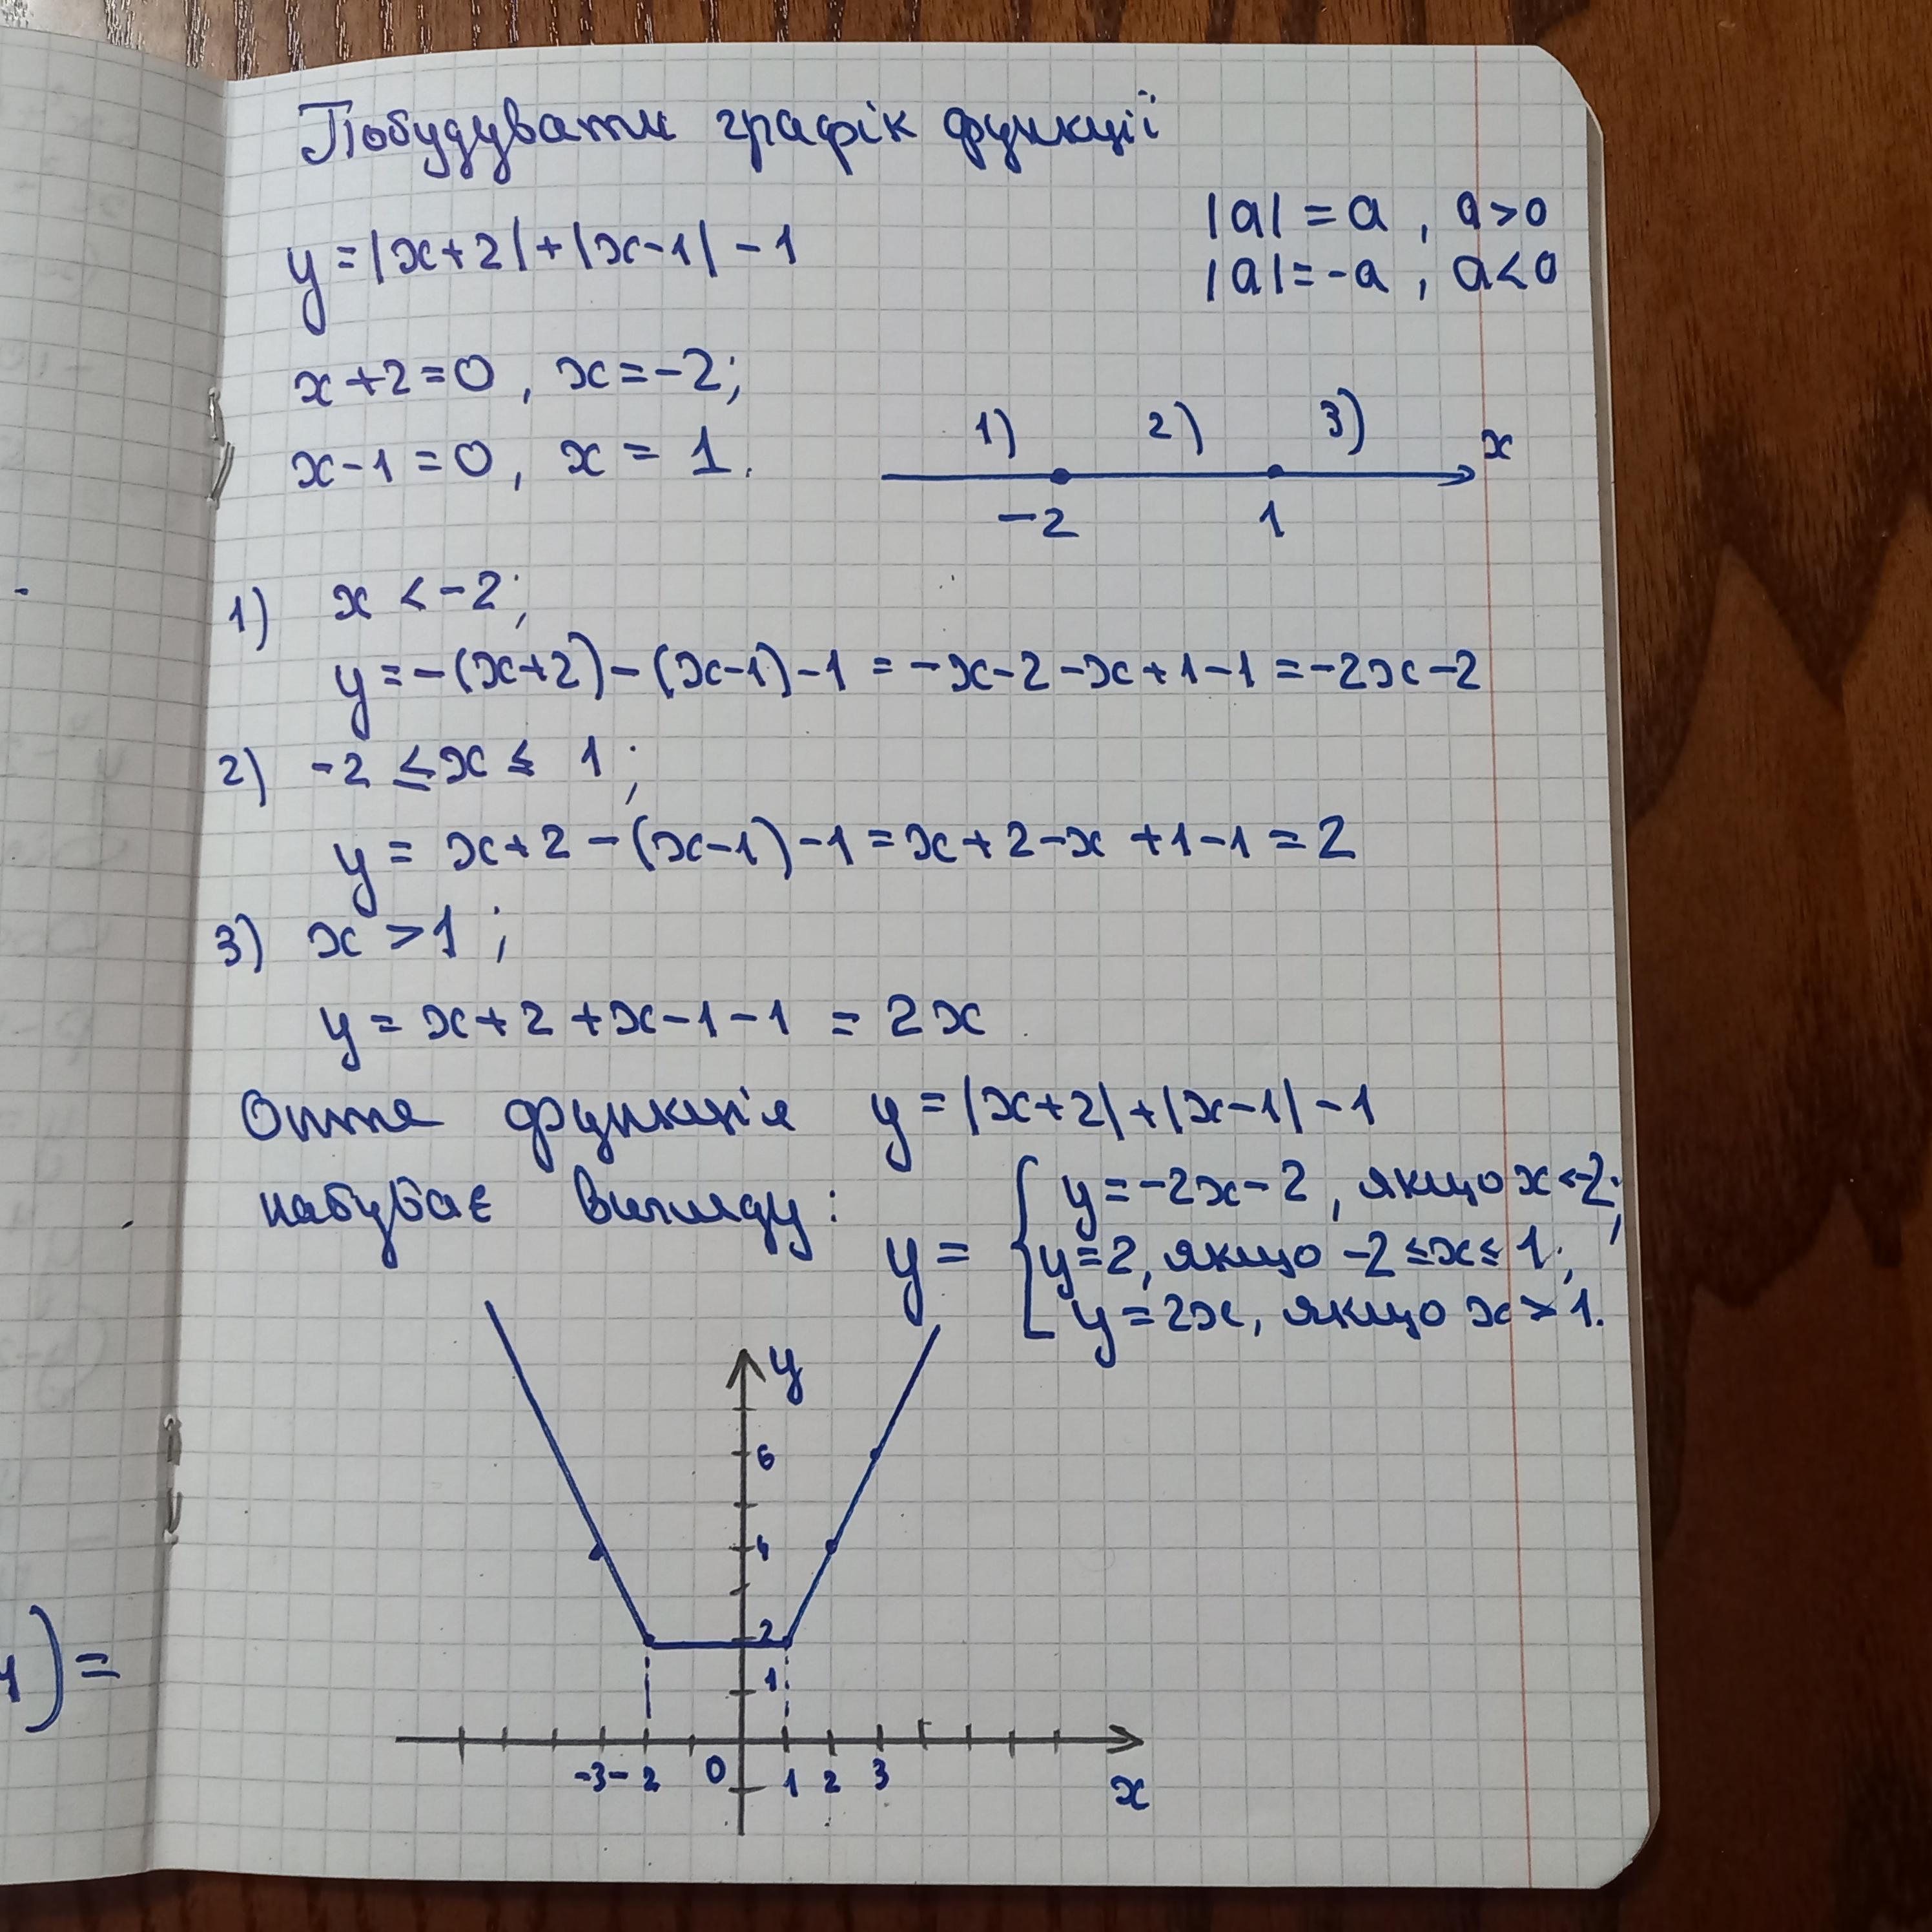 Побудувати графік функції
y = |x+2| + |x-1| - 1
|a| = a , a > 0
|a| = -a , a < 0
x + 2 = 0 , x = -2;
x - 1 = 0 , x = 1.
1) 2) 3) x
-2 1
1) x < -2;
y = -(x+2) - (x-1) - 1 = -x - 2 - x + 1 - 1 = -2x - 2
2) -2 ≤ x ≤ 1 ;
y = x + 2 - (x-1) - 1 = x + 2 - x + 1 - 1 = 2
3) x > 1 ;
y = x + 2 + x - 1 - 1 = 2x
Отже функція y = |x+2| + |x-1| - 1
набуває вигляду:
y = { y = -2x - 2 , якщо x < -2;
y = 2, якщо -2 ≤ x ≤ 1;
y = 2x, якщо x > 1.
y
6
4
2
1
-3 -2 0 1 2 3
x
)=